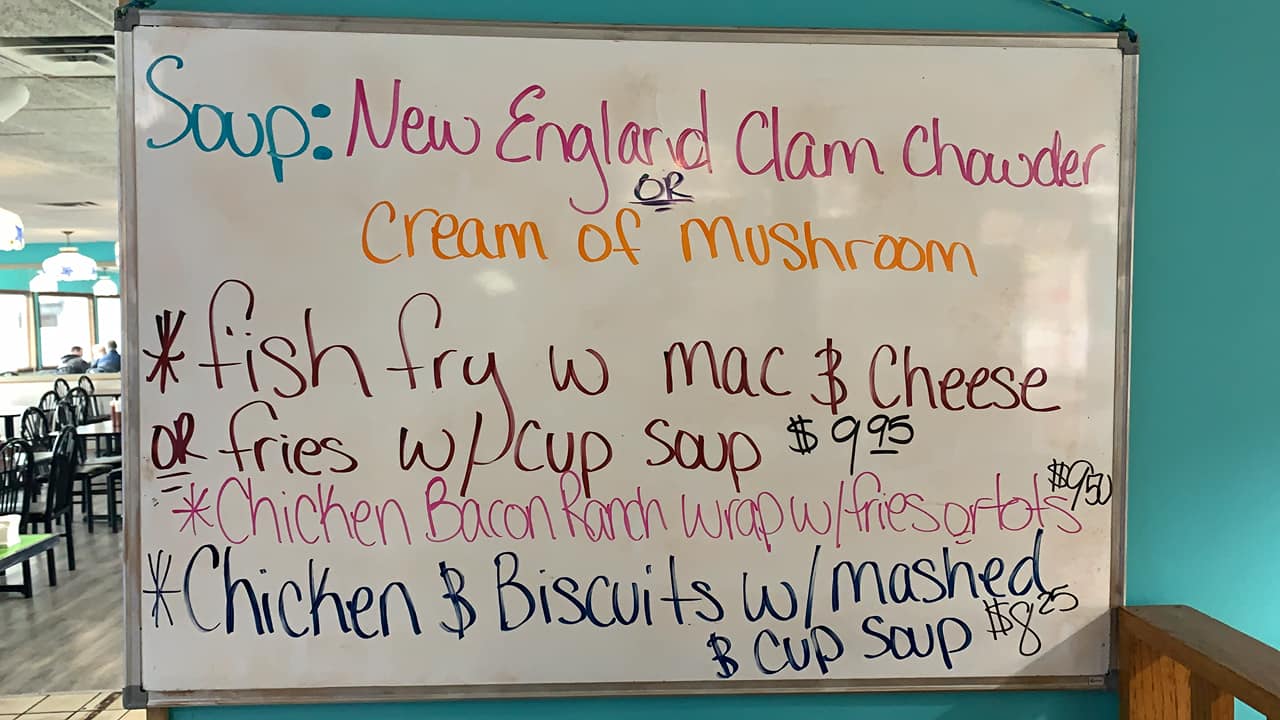 Soup: New England Clam Chowder
OR
Cream of Mushroom
*fish fry w mac & Cheese
OR fries w/ cup Soup $9.95
*Chicken Bacon Ranch wrap w/fries or tots $9.50
*Chicken & Biscuits w/mashed
& Cup Soup $8.25